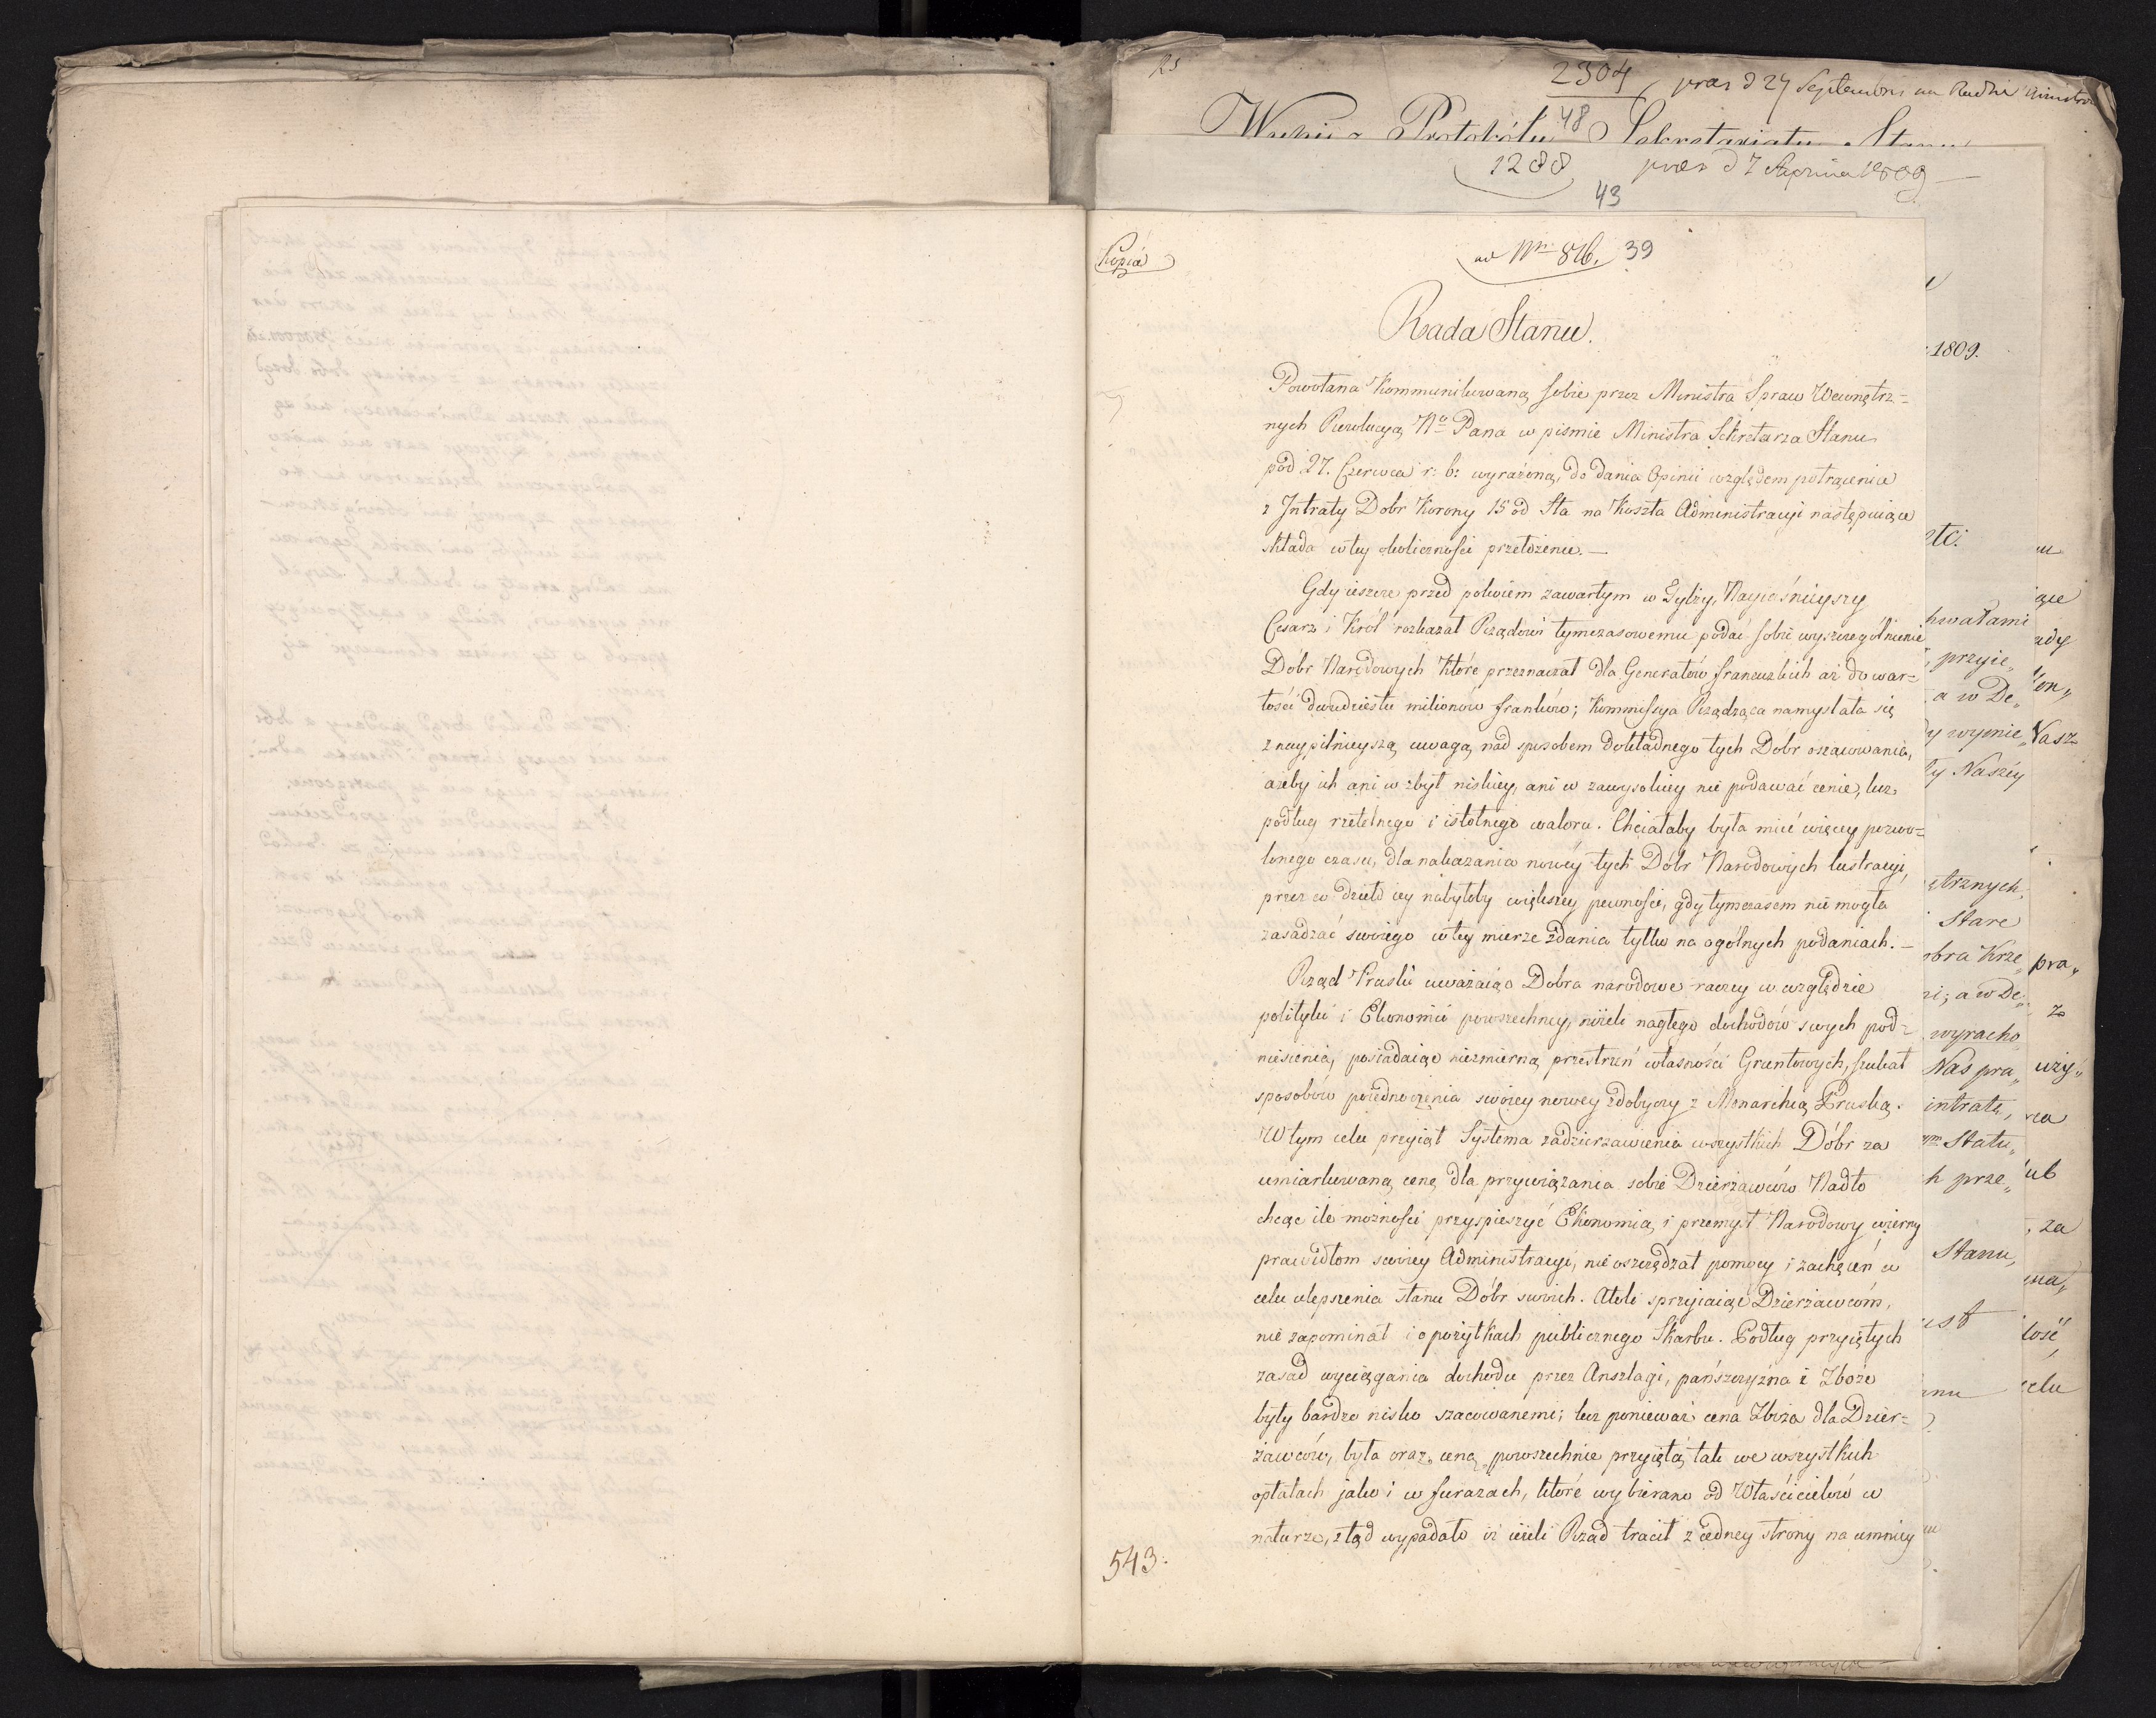 2304 præs d 27 Septembris
48
Protokółu Sekretariatu Stanu
1288 præs d 7 Aprilis 1809
43
Kopia
ad Nr 816. 39
Rada Stanu.
Powołana kommunikowaną sobie przez Ministra Spraw Wewnętrz=
nych Rezolucyą Nº Pana w pismie Ministra Sekretarza Stanu
pod 27. Czerwca r: b: wyrażoną, do dania Opinii względem potrącenia
z Intraty Dobr Korony 15 od Sta na Koszta Administracyi następuiące
składa w tey okoliczności przełożenie. —
Gdy ieszcze przed pokoiem zawartym w Tylży, Nayiaśnieyszy
Cesarz i Król rozkazał Rządowi tymczasowemu podać sobie wyszczególnienie
Dóbr Narodowych które przeznaczał dla Generałów francuzkich aż do war=
tości dwudziestu milionów franków; Kommissya Rządząca namyslała się
z naypilnieyszą uwagą nad sposobem dokładnego tych Dobr oszacowania,
ażeby ich ani w zbyt niskiey, ani w zawysokiey nie podawać cenie, lecz
podług rzetelnego i istotnego waloru. Chciałaby była mieć więcey pozwo=
lonego czasu, dla nakazania nowéy tych Dóbr Narodowych lustracyi,
przez co dzieło iey nabyłoby większey pewności, gdy tymczasem nie mogła
zasadzać swoiego w tey mierze zdania tylko na ogólnych podaniach. —
Rząd Pruski uważaiąc Dobra narodowe raczey w względzie
polityki i Ekonomii powszechney, niżeli nagłego dochodów swych pod=
niesienia, posiadaiąc niezmierną przestrzeń własności Gruntowych, szukał
sposobów poiednoczenia swoiey nowey zdobyczy z Monarchią Pruską.
W tym celu przyiął Systema zadzierzawienia wszystkich Dóbr za
umiarkowaną cenę dla przywiązania sobie Dzierżawców Nadto
chcąc ile możności przyspieszyć Ekonomią i przemysł Narodowy wierny
prawidłom swoiey Administracyi, nie oszczędzał pomocy i zachęceń w
celu ulepszenia stanu Dóbr swoich. Atoli sprzyiaiąc Dzierżawcóm,
nie zapominał i o pożytkach publicznego Skarbu. Podług przyiętych
zasad wyciągania dochodu przez Anszlagi, pańszczyzna i Zboże
były bardzo nisko szacowanemi; lecz ponieważ cena Zboża dla Dzier=
żawców, była oraz ceną powszechnie przyiętą tak we wszystkich
opłatach jako i w furażach, które wybierano od Właścicielów w
naturze, ztąd wypadało iż ieżeli Rząd tracił z iedney strony na umniey
543.
1809.
etc.
hwałami
przyie„
a w De„
y wymie„
ły Naszéy
ętrznych
Stare
obra Krze„
ni; a w De„
wyracho„
Nas pra„
intratę,
Statu„
h prze„
Stanu,
ady
Nasz
pra„
z
uży„
ub
za
łość,
celu